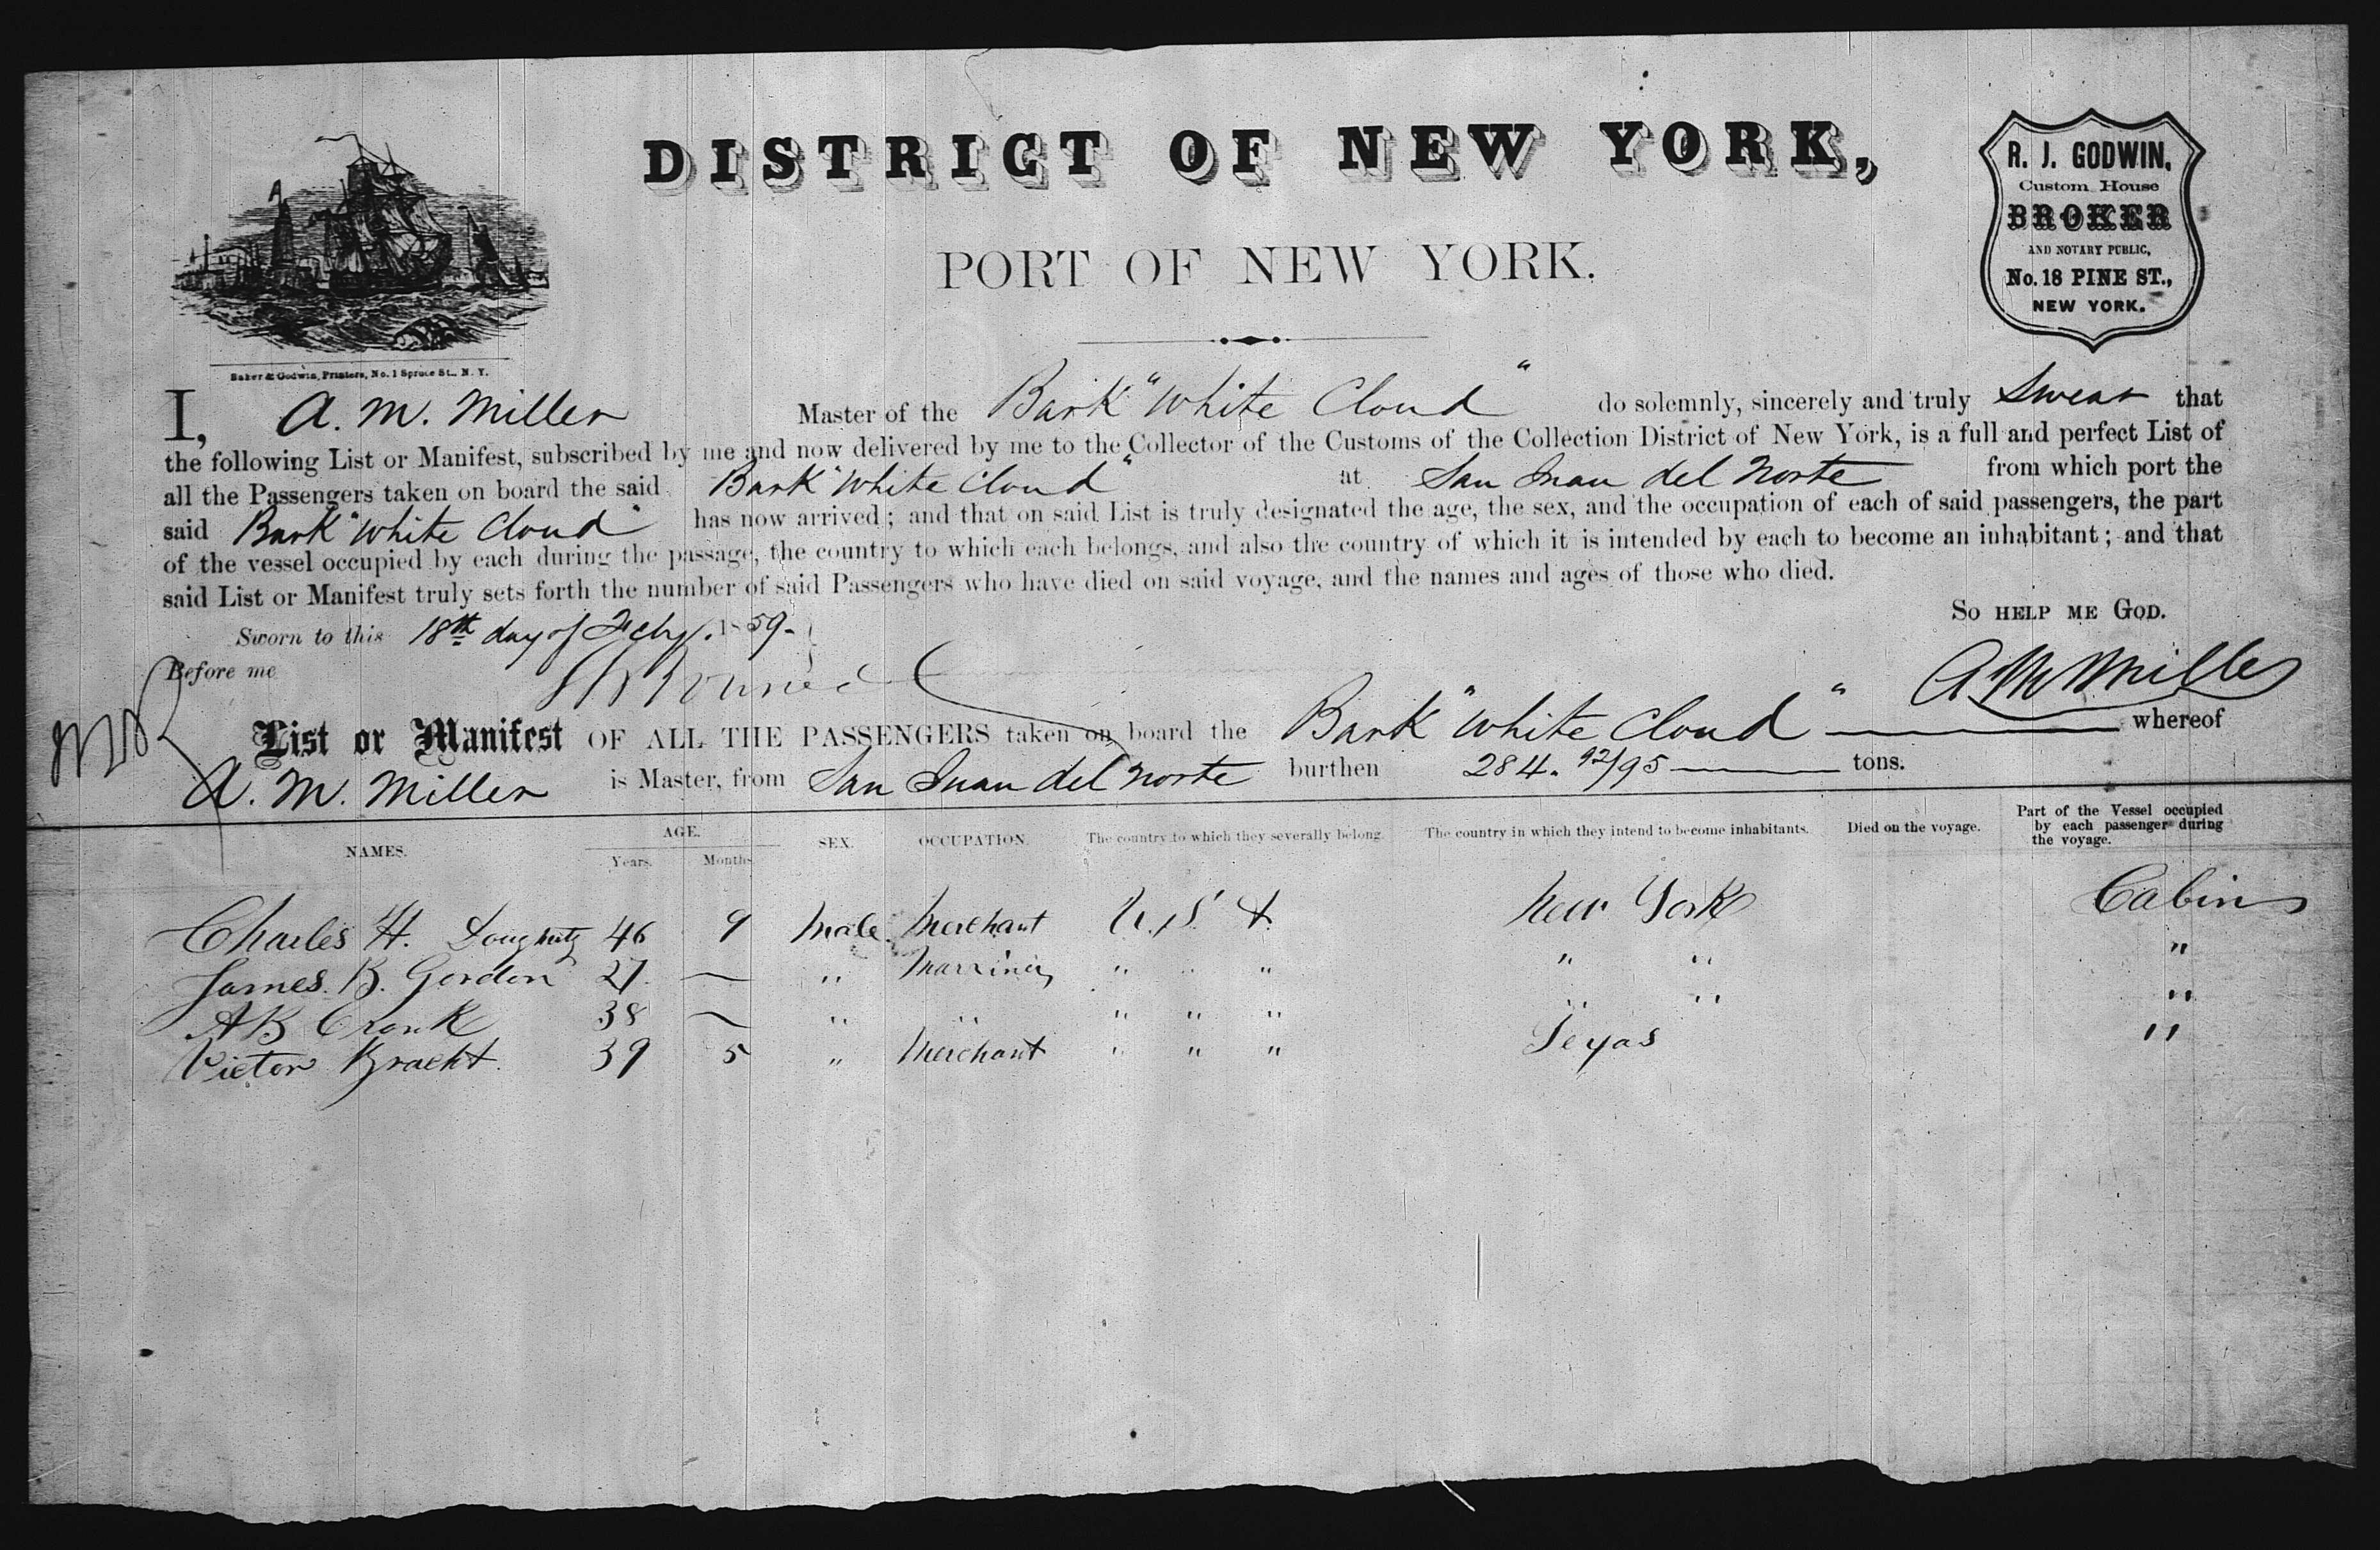 DISTRICT OF NEW YORK,
PORT OF NEW YORK.
R. J. GODWIN,
Custom House
BROKER
AND NOTARY PUBLIC,
No. 18 PINE ST.,
NEW YORK.
Baker & Godwin, Printers, No. 1 Spruce St., N. Y.
I, A. M. Miller Master of the Bark "White Cloud" do solemnly, sincerely and truly Swear that
the following List or Manifest, subscribed by me and now delivered by me to the Collector of the Customs of the Collection District of New York, is a full and perfect List of
all the Passengers taken on board the said Bark "White Cloud" at San Juan del Norte from which port the
said Bark "White Cloud" has now arrived; and that on said List is truly designated the age, the sex, and the occupation of each of said passengers, the part
of the vessel occupied by each during the passage, the country to which each belongs, and also the country of which it is intended by each to become an inhabitant; and that
said List or Manifest truly sets forth the number of said Passengers who have died on said voyage, and the names and ages of those who died.
So help me God.
Sworn to this 18th day of Feby. 1859.
Before me
A M Miller
List or Manifest OF ALL THE PASSENGERS taken on board the Bark "White Cloud" whereof
A. M. Miller is Master, from San Juan del Norte burthen 284. 92/95 tons.
NAMES. AGE. Years. Months. SEX. OCCUPATION. The country to which they severally belong. The country in which they intend to become inhabitants. Died on the voyage. Part of the Vessel occupied by each passenger during the voyage.
Charles H. 46 9 Male Merchant U. S. A. New York Cabin
James. B. Gordon 27 — " " " " " " "
A B Cronk 38 — " " " " " " " "
Victor Bracht. 39 5 " Merchant " " " Texas "